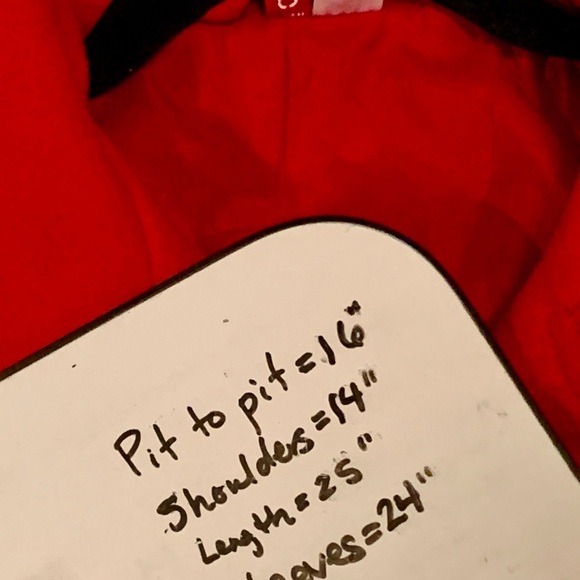 Pit to pit = 16"
Shoulders = 14"
Length = 25"
eeves = 24"